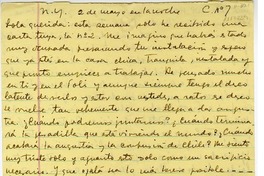 N.Y. 2 de mayo en la noche C No 7
Lola querida: esta semana sólo he recibido una
carta tuya, la No 2. Me imagino que habrás estado
muy ocupada preparando tu instalación y espero
que ya estés en la casa chica, tranquila, instalada y
que pronto empieces a trabajar. He pensado mucho
en ti y en el Poli y aunque siempre tengo el deseo
latente de verlos y estar con ustedes, a ratos se desa
se vuelve tan vehemente que llega a dar angus
tia. ¿Cuándo podremos juntarnos? ¿Cuándo terminará
la pesadilla que está viviendo el mundo? ¿Cuándo
acabará la angustia y la confusión de Chile? Me siento
muy triste solo y aguanto esto sólo como un sacrificio
necesario. Y que ojalá sea lo más breve posible